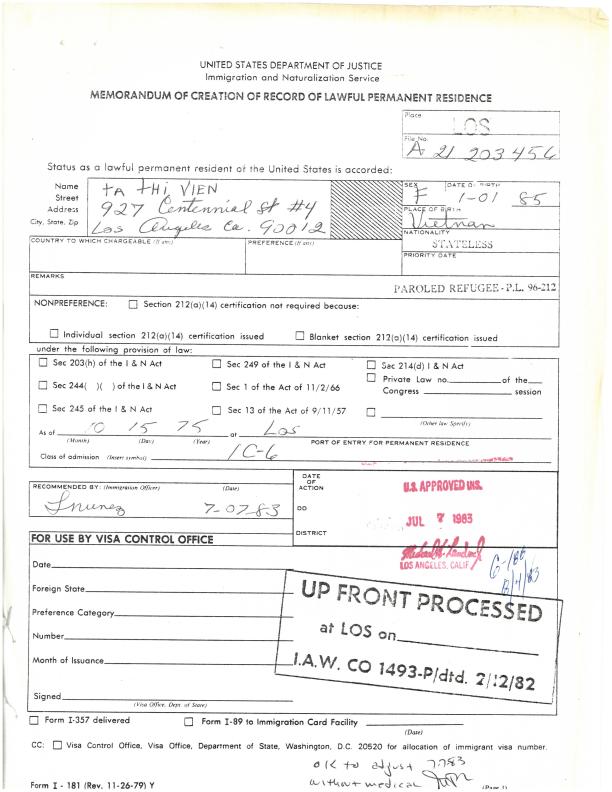 UNITED STATES DEPARTMENT OF JUSTICE
Immigration and Naturalization Service
MEMORANDUM OF CREATION OF RECORD OF LAWFUL PERMANENT RESIDENCE
Place
LOS
File No.
A 21 203 456
Status as a lawful permanent resident of the United States is accorded:
Name
Street
Address
City, State, Zip
TA THI VIEN
927 Centennial St #4
Los Angeles Ca. 90012
SEX
F
DATE OF BIRTH
1-01 85
PLACE OF BIRTH
Vietnam
NATIONALITY
STATELESS
COUNTRY TO WHICH CHARGEABLE (If any)
PREFERENCE (If any)
PRIORITY DATE
REMARKS
PAROLED REFUGEE-P.L. 96-212
NONPREFERENCE: ☐ Section 212(a)(14) certification not required because:
☐ Individual section 212(a)(14) certification issued ☐ Blanket section 212(a)(14) certification issued
under the following provision of law:
☐ Sec 203(h) of the I & N Act ☐ Sec 249 of the I & N Act ☐ Sec 214(d) I & N Act
☐ Private Law no. of the
☐ Sec 244( )( ) of the I & N Act ☐ Sec 1 of the Act of 11/2/66 Congress session
☐ Sec 245 of the I & N Act ☐ Sec 13 of the Act of 9/11/57 ☐
(Other law Specify)
As of 10 15 75 at Los
(Month) (Day) (Year) PORT OF ENTRY FOR PERMANENT RESIDENCE
Class of admission (Insert symbol) IC-6
RECOMMENDED BY: (Immigration Officer) (Date)
7-07-83
DATE
OF
ACTION
DD
DISTRICT
U.S. APPROVED INS.
JUL 7 1983
LOS ANGELES, CALIF
FOR USE BY VISA CONTROL OFFICE
Date
Foreign State
Preference Category
Number
Month of Issuance
Signed
(Visa Office, Dept. of State)
UP FRONT PROCESSED
at LOS on
I.A.W. CO 1493-P/dtd. 2/12/82
☐ Form I-357 delivered ☐ Form I-89 to Immigration Card Facility
(Date)
CC: ☐ Visa Control Office, Visa Office, Department of State, Washington, D.C. 20520 for allocation of immigrant visa number.
OK to adjust 7783
without medical
Form I - 181 (Rev. 11-26-79) Y
(Page 1)